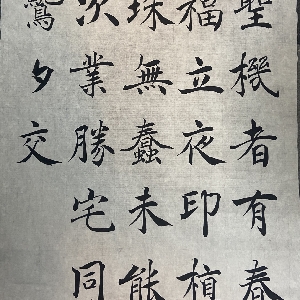 聖機者有春
福立夜印
珠無蠢未能
次業勝宅同
夕交